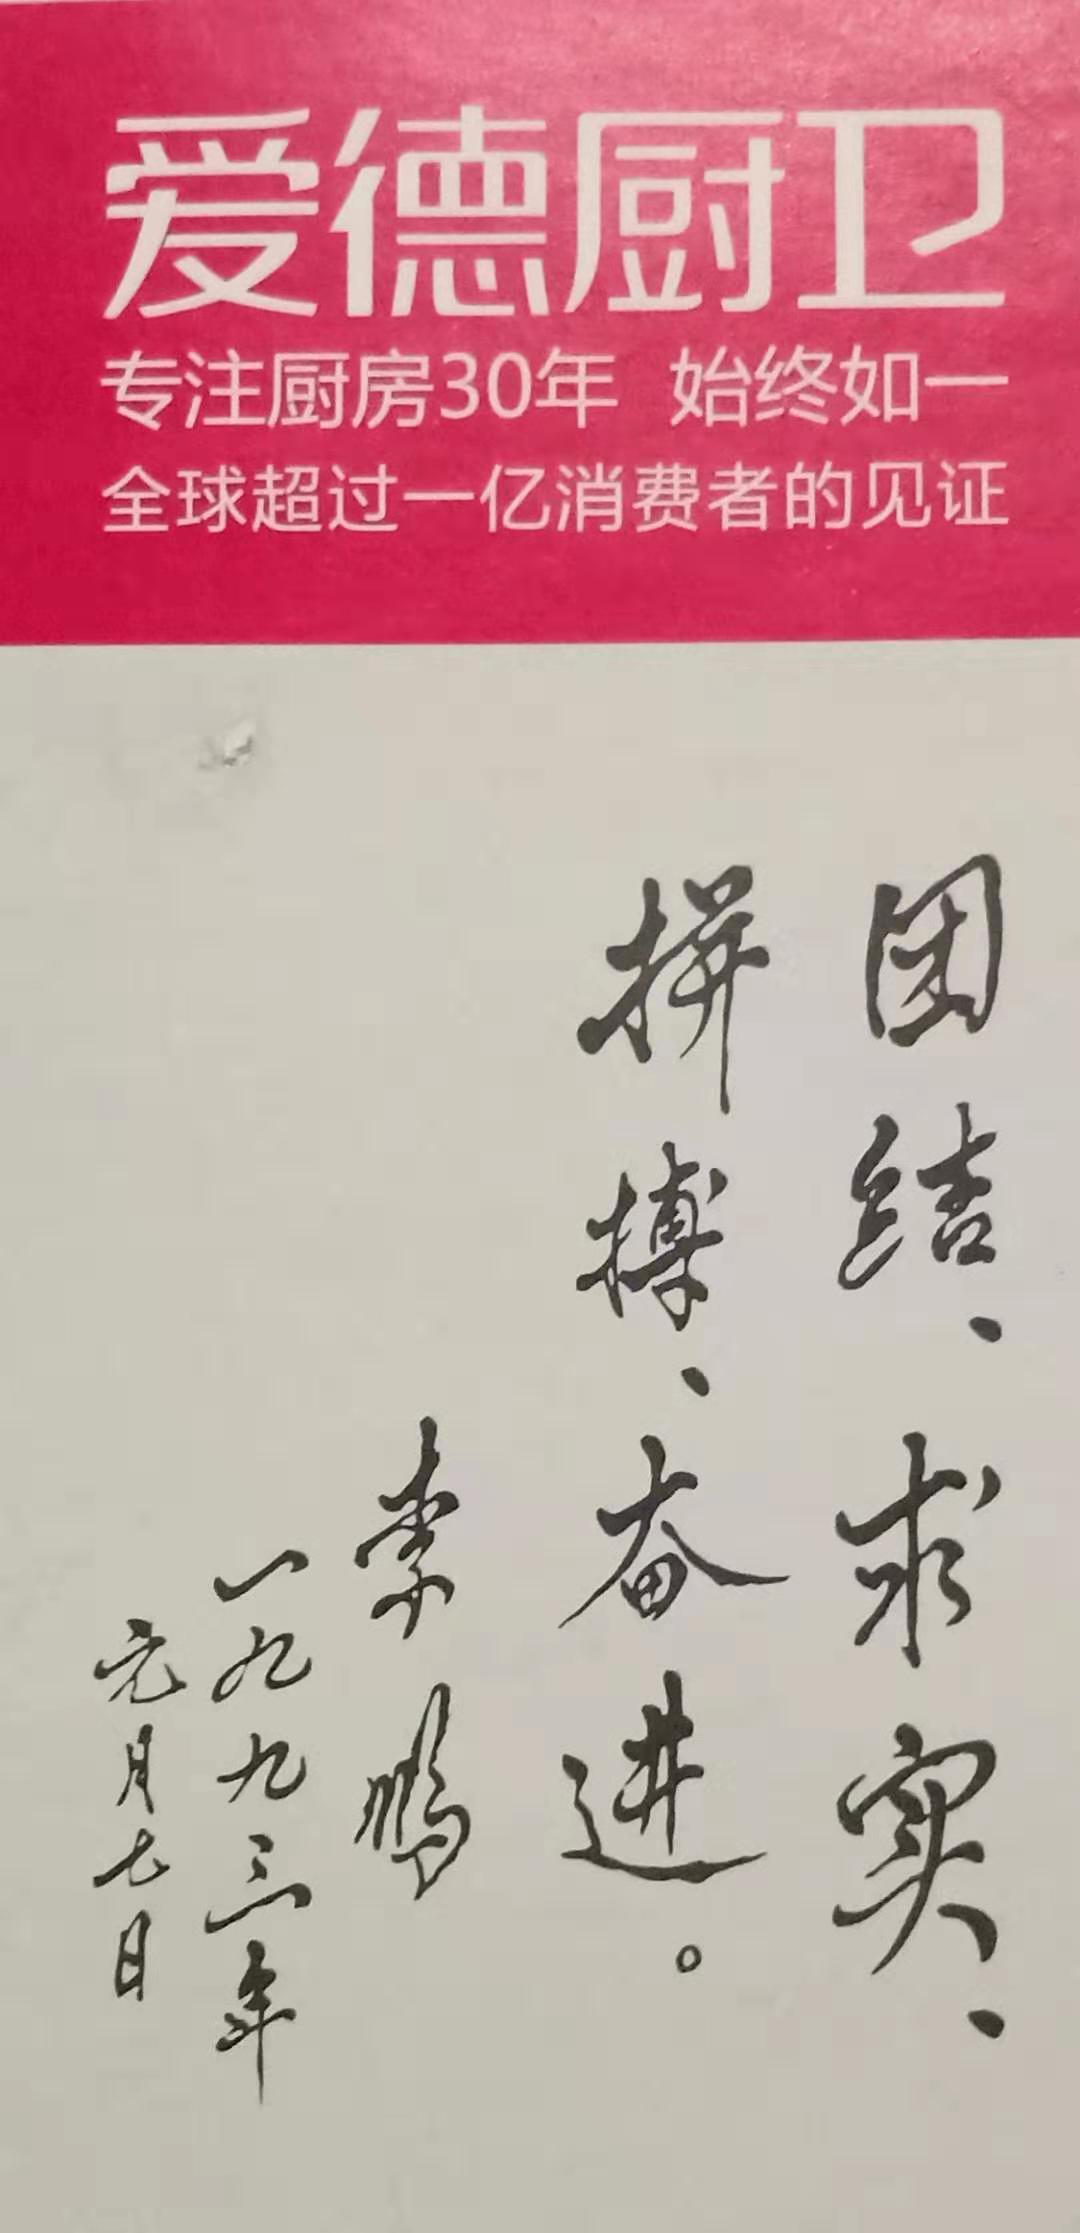 爱德厨卫
专注厨房30年 始终如一
全球超过一亿消费者的见证
团结、求实、
拼搏、奋进。
李鹏
一九九三年
元月七日